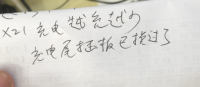 X21 充电越充越少
充电尾插板已换过了